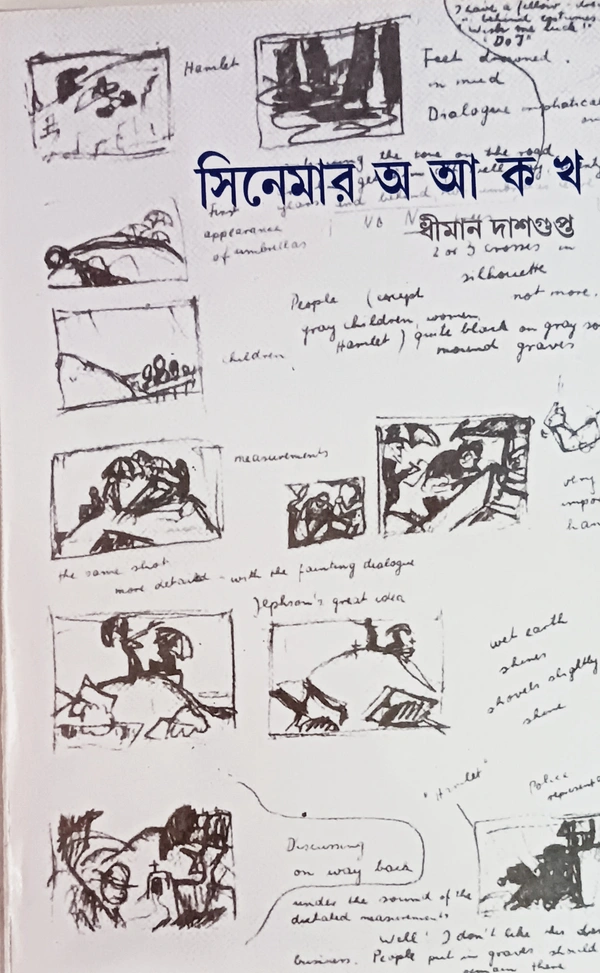 I have a fellow
behind costumes.
"Wish me luck"
Do I
Hamlet
Feet drowned.
in mud
Dialogue
the tone on the road
সিনেমার অ আ ক খ
ধীমান দাশগুপ্ত
First
appearance
of umbrellas
2 or 3 crosses in
silhouette
People (except
not more.
gray children, women,
Hamlet) quite black on gray
mound graves
children
measurements
very
the same shot
more detailed - with the fainting dialogue
Jephson's great idea
wet earth
shines
shovels slightly
shine
"Hamlet"
Police
Discussing
on way back
under the sound of the
dictated measurements
Well! I don't like this
business. People put in graves should
remain there